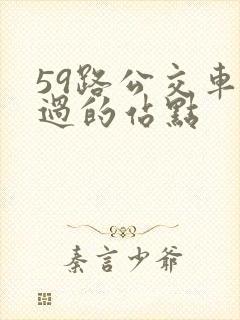 59路公交車
過的佔點
秦言少爺